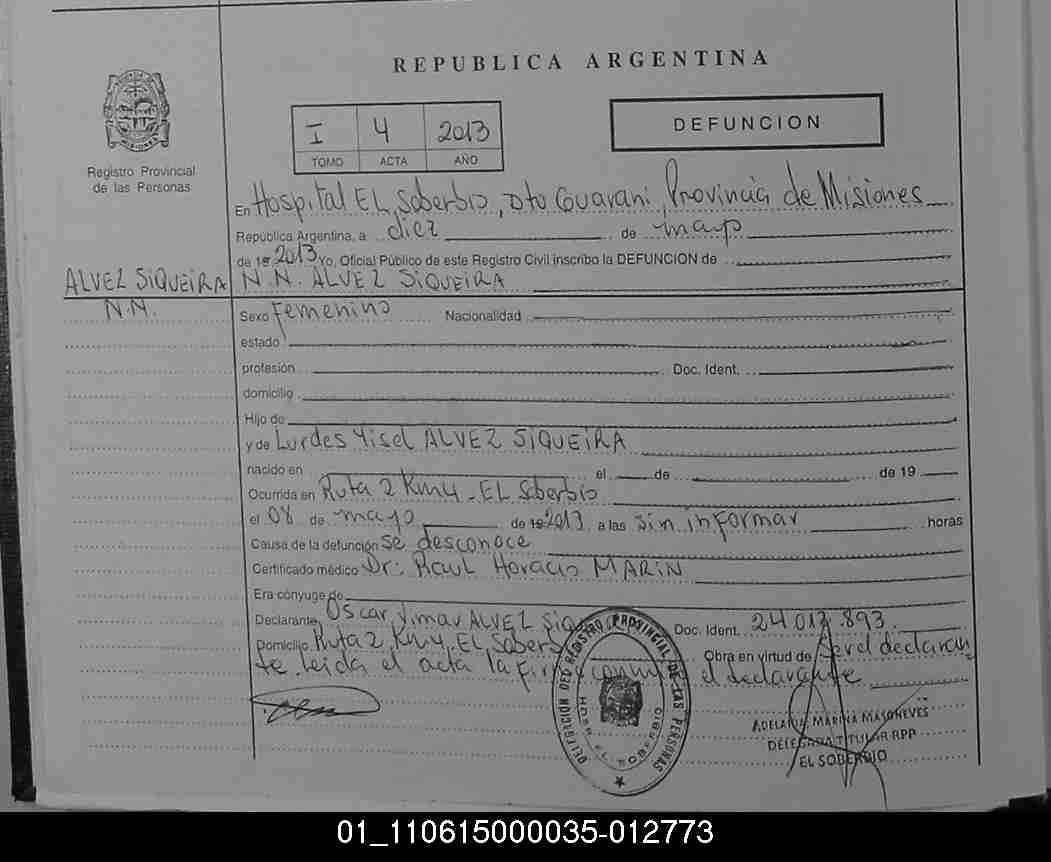 REPUBLICA ARGENTINA
Registro Provincial
de las Personas
I 4 2013
TOMO ACTA AÑO
DEFUNCION
En Hospital EL Soberbio, Dto Guarani, Provincia de Misiones
República Argentina, a diez de mayo
de 19 2013 Yo, Oficial Público de este Registro Civil inscribo la DEFUNCION de
ALVEZ SIQUEIRA N.N. ALVEZ SIQUEIRA
N.N.
Sexo Femenino Nacionalidad
estado
profesión Doc. Ident.
domicilio
Hijo de
y de Lurdes Yisel ALVEZ SIQUEIRA
nacido en el de de 19
Ocurrida en Ruta 2 Km 4 - EL Soberbio
el 08 de mayo de 19 2013 a las sin informar horas
Causa de la defunción se desconoce
Certificado médico Dr: Raul Horacio MARIN
Era cónyuge de
Declarante Oscar ALVEZ Doc. Ident. 24 013 893
Domicilio Ruta 2, Km 4, EL Obra en virtud de Ser el declaran
te. Leida el acta la el declarante
DELEGACION DEL REGISTRO PROVINCIAL DE LAS PERSONAS
EL SOBERBIO
ADELAIDA MARINA
DELEGADA TITULAR RPP
EL SOBERBIO
01_110615000035-012773